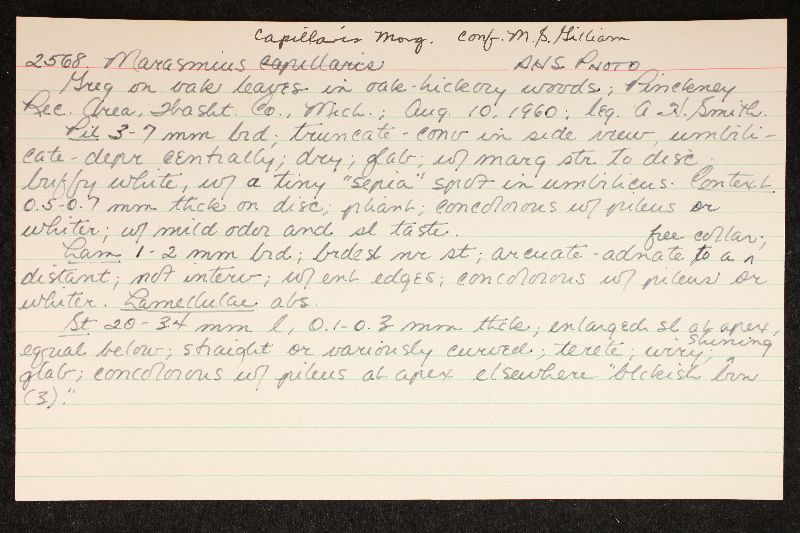 capillaris Morg. conf. M. S. Gilliam
2568. Marasmius capillaris AHS PHOTO
Greg on oak leaves in oak-hickory woods; Pinckney
Rec. Area, Washt. Co., Mich.; Aug. 10, 1960; leg. A. H. Smith.
Pil 3-7 mm brd; truncate-conv in side view, umbili-
cate-depr centrally; dry; glab; w/ marg str to disc
buffy white, w/ a tiny "sepia" spot in umbilicus. Context
0.5-0.7 mm thck on disc; pliant; concolorous w/ pileus or
whiter; w/ mild odor and sl taste.
free collar;
Lam 1-2 mm brd; brdest nr st; arcuate-adnate to a
distant; not interv; w/ ent edges; concolorous w/ pileus or
whiter. Lamellulae abs.
St 20-34 mm l, 0.1-0.3 mm thck; enlarged sl at apex,
equal below; straight or variously curved; terete; wiry; shining
glab; concolorous w/ pileus at apex elsewhere "blckish brn
(3)."